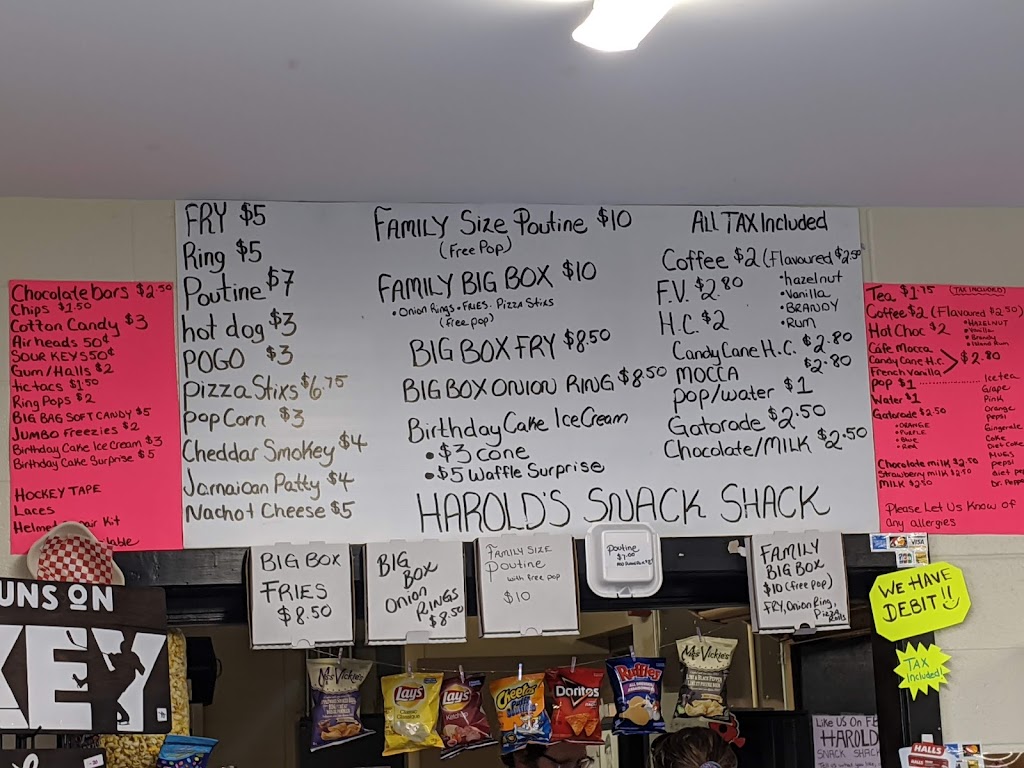 FRY $5
Ring $5
Poutine $7
hot dog $3
POGO $3
Pizza Stixs $6.75
popCorn $3
Cheddar Smokey $4
Jamaican Patty $4
Nachot Cheese $5
FAMILY Size Poutine $10
(Free Pop)
FAMILY BIG BOX $10
•Onion Rings •FRIES. Pizza Stixs
(Free pop)
BIG BOX FRY $8.50
BIG BOX ONION RING $8.50
Birthday Cake Ice Cream
• $3 cone
• $5 Waffle Surprise
HAROLD'S SNACK SHACK
ALL TAX Included
Coffee $2 (Flavoured $2.50
•hazelnut
•Vanilla
•BRANDY
•Rum
F.V. $2.80
H.C. $2
Candy Cane H.C. $2.80
MOCCA $2.80
pop/water $1
Gatorade $2.50
Chocolate/MILK $2.50
Chocolate bars $2.50
Chips $1.50
Cotton Candy $3
Air heads 50¢
SOUR KEYS 50¢
Gum/Halls $2
tic tacs $1.50
Ring Pops $2
BIG BAG SOFT CANDY $5
JUMBO Freezies $2
Birthday Cake Ice Cream $3
Birthday Cake Surprise $5
HOCKEY TAPE
Laces
Helmet Kit
Tea $1.75 (TAX INCLUDED)
Coffee $2 (Flavoured $2.50)
•HAZELNUT
•Vanilla
•Brandy
•Island Rum
Hot Choc $2
Cafe Mocca
Candy Cane H.C. $2.80
French Vanilla
pop $1
Water $1
Gatorade $2.50
•ORANGE
•PURPLE
•Blue
•Red
Ice tea
Grape
Pink
Orange
pepsi
Gingerale
Coke
Diet Coke
MUGS
pepsi
diet
Dr. Pepper
Chocolate milk $2.50
Strawberry milk $2.50
MILK
Please Let Us Know of
any allergies
BIG BOX
FRIES
$8.50
BIG
BOX
ONION
RINGS
$8.50
FAMILY SIZE
Poutine
with free pop
$10
Poutine
$7.00
FAMILY
BIG BOX
$10 (free pop)
FRY, Onion Ring,
Pizza
Rolls
VISA
WE HAVE
DEBIT!!
TAX
Included!
UNS ON
KEY
Miss Vickie's
Lay's
Classic
Lay's
Ketchup
Cheetos
Puffs
Doritos
Ruffles
ALL DRESSED
Miss Vickie's
LIKE US ON FB
HAROLD
SNACK SHACK
HALLS